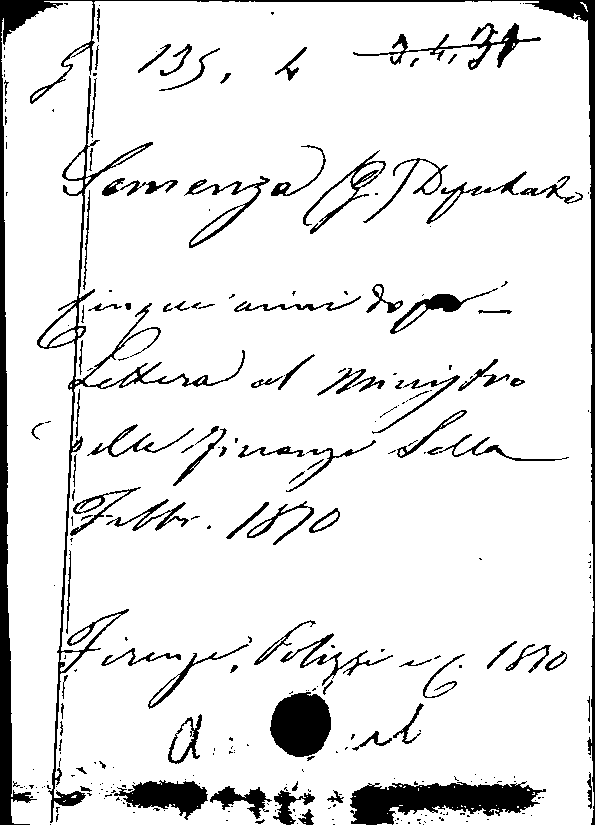 G 135. 4 3.4.31
Semenza (G.) Deputato
Cinque anni dopo —
Lettera al Ministro
delle Finanze Sella
Febbr. 1870
Firenze, Polizzi e C. 1870